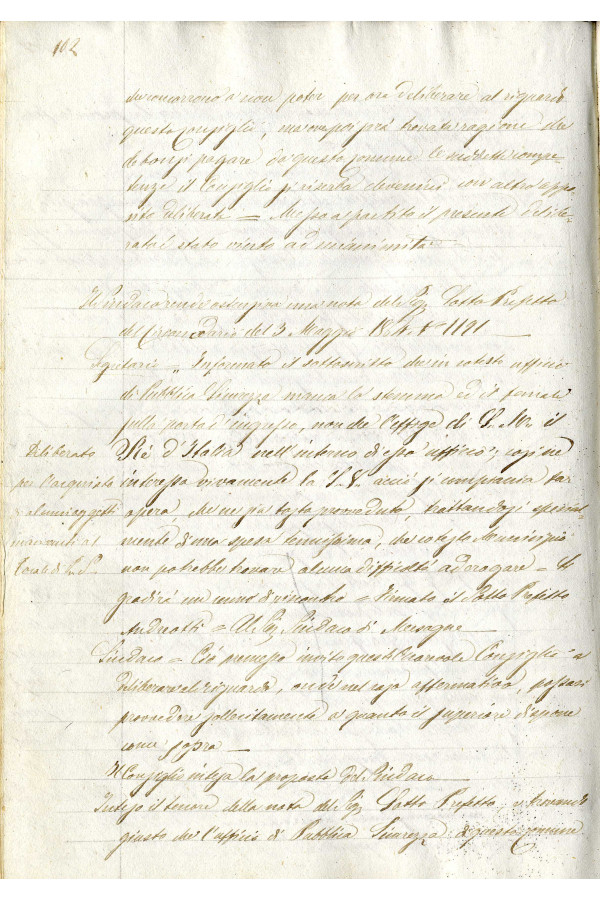 102
si concorrono a non poter per ora deliberare al riguardo
questo Consiglio, ma comipoi sarà trovata ragione che
debbansi pagare da questo Comune le suddette compe-
tenze il Consiglio si riserba divenirci con altro appo-
sito deliberato = Messo a partito il presente delibe-
rato è stato vinto ad unanimità
Il Sindaco rende ostensiva una nota del Sig. Sotto Prefetto
del Circondario del 3 Maggio 18 N.° 1191
Segretario = Informato il sottoscritto che in cotesto ufficio
di Pubblica Sicurezza manca lo stemma ed il fanale
sulla porta d'ingresso, non che l'effige di S. M. il
Re d'Italia nell'interno di esso ufficio, cosi ne
interessa vivamente la S. V. acciò si compiaccia far
opera che ne sia tosto provveduto, trattandosi special-
mente di una spesa tenuissima, che cotesto Municipio
non potrebbe trovare alcuna difficoltà ad erogare = Mi
gradirò un cenno di riscontro = Firmato il Sotto Prefetto
Andreotti = Al Sig. Sindaco di Mesagne
Deliberato
per l'acquisto
di alcuni oggetti
mancanti al
locale di P. S.
Sindaco = Ciò premesso invito questo Onorevole Consiglio a
deliberare al riguardo, onde nel caso affermativo, possasi
provvedere sollecitamente a quanto il superiore dispone
come sopra
Il Consiglio intesa la proposta del Sindaco
Inteso il tenore della nota del Sig. Sotto Prefetto, e trovando
giusto che l'ufficio di Pubblica Sicurezza di questo Comune